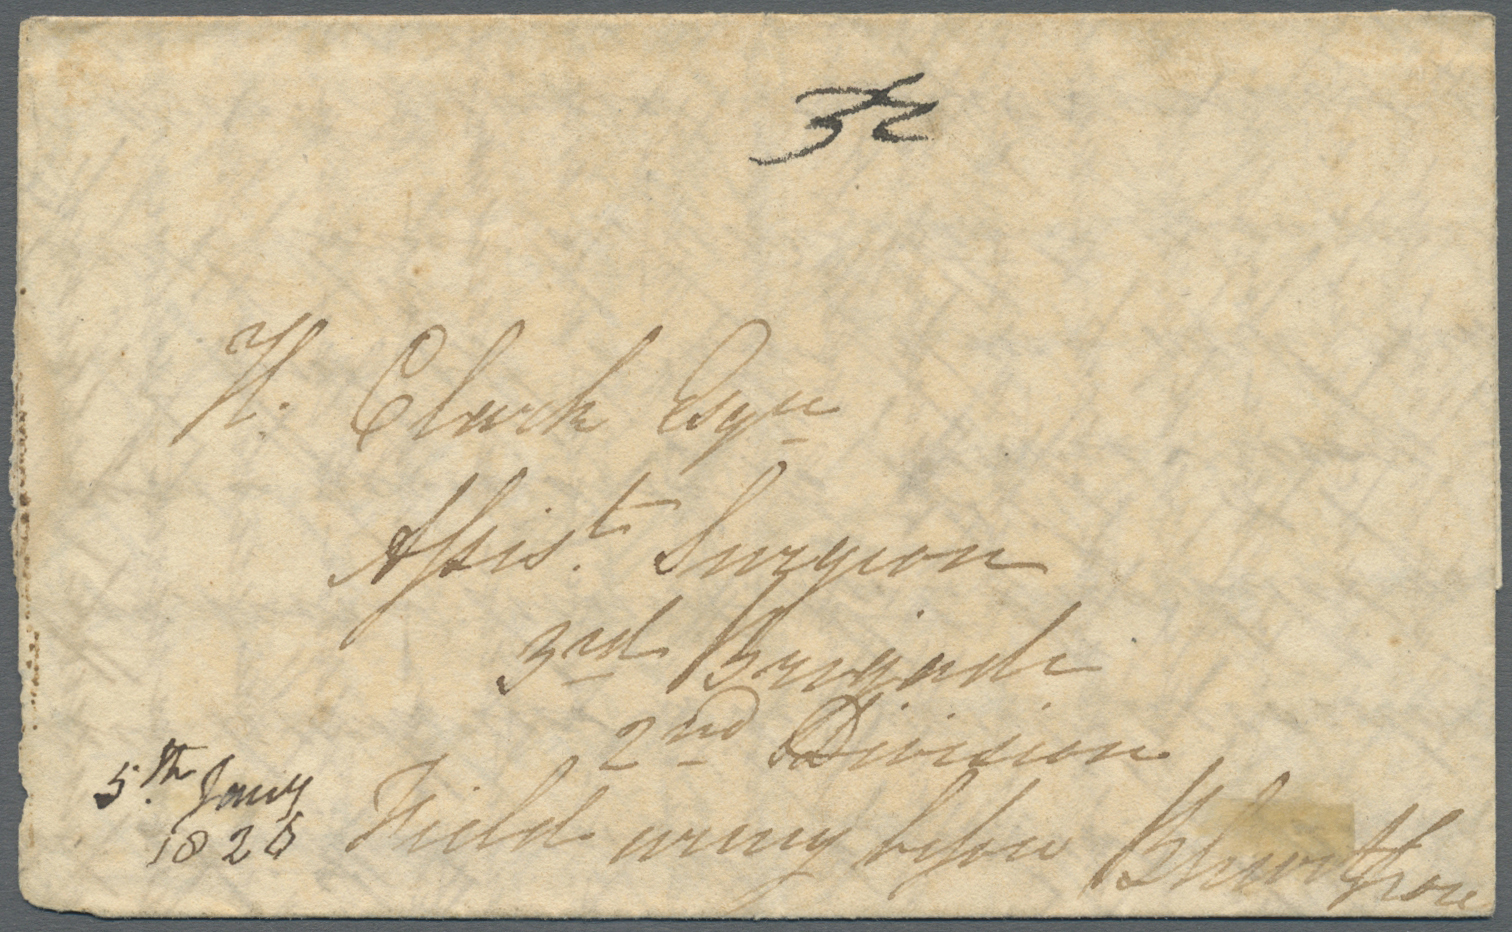 32
H. Clark Esqre
Assist. Surgeon
3rd Brigade
2nd Division
Field army before Bhurtpore
5th Jany
1826